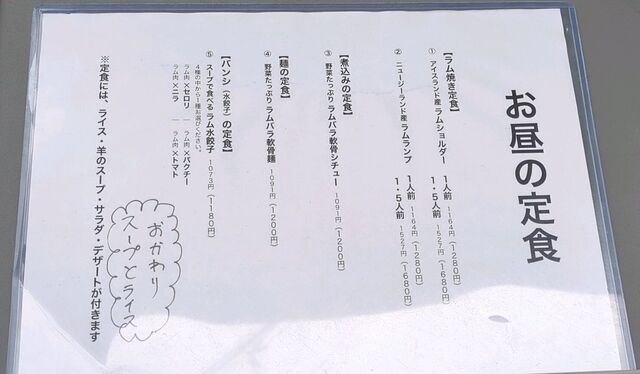 お昼の定食
【ラム焼き定食】
① アイスランド産 ラムショルダー 1人前 1164円(1280円)
1・5人前 1527円(1680円)
② ニュージーランド産 ラムランプ 1人前 1164円(1280円)
1・5人前 1527円(1680円)
【煮込みの定食】
③ 野菜たっぷり ラムバラ軟骨シチュー 1091円(1200円)
【麺の定食】
④ 野菜たっぷり ラムバラ軟骨麺 1091円(1200円)
【バンシ(水餃子)の定食】
⑤ スープで食べる ラム水餃子 1073円(1180円)
4種の中から1種お選びください。
ラム肉×セロリ ラム肉×パクチー
ラム肉×ニラ ラム肉×トマト
※定食には、ライス・羊のスープ・サラダ・デザートが付きます
おかわり
スープとライス